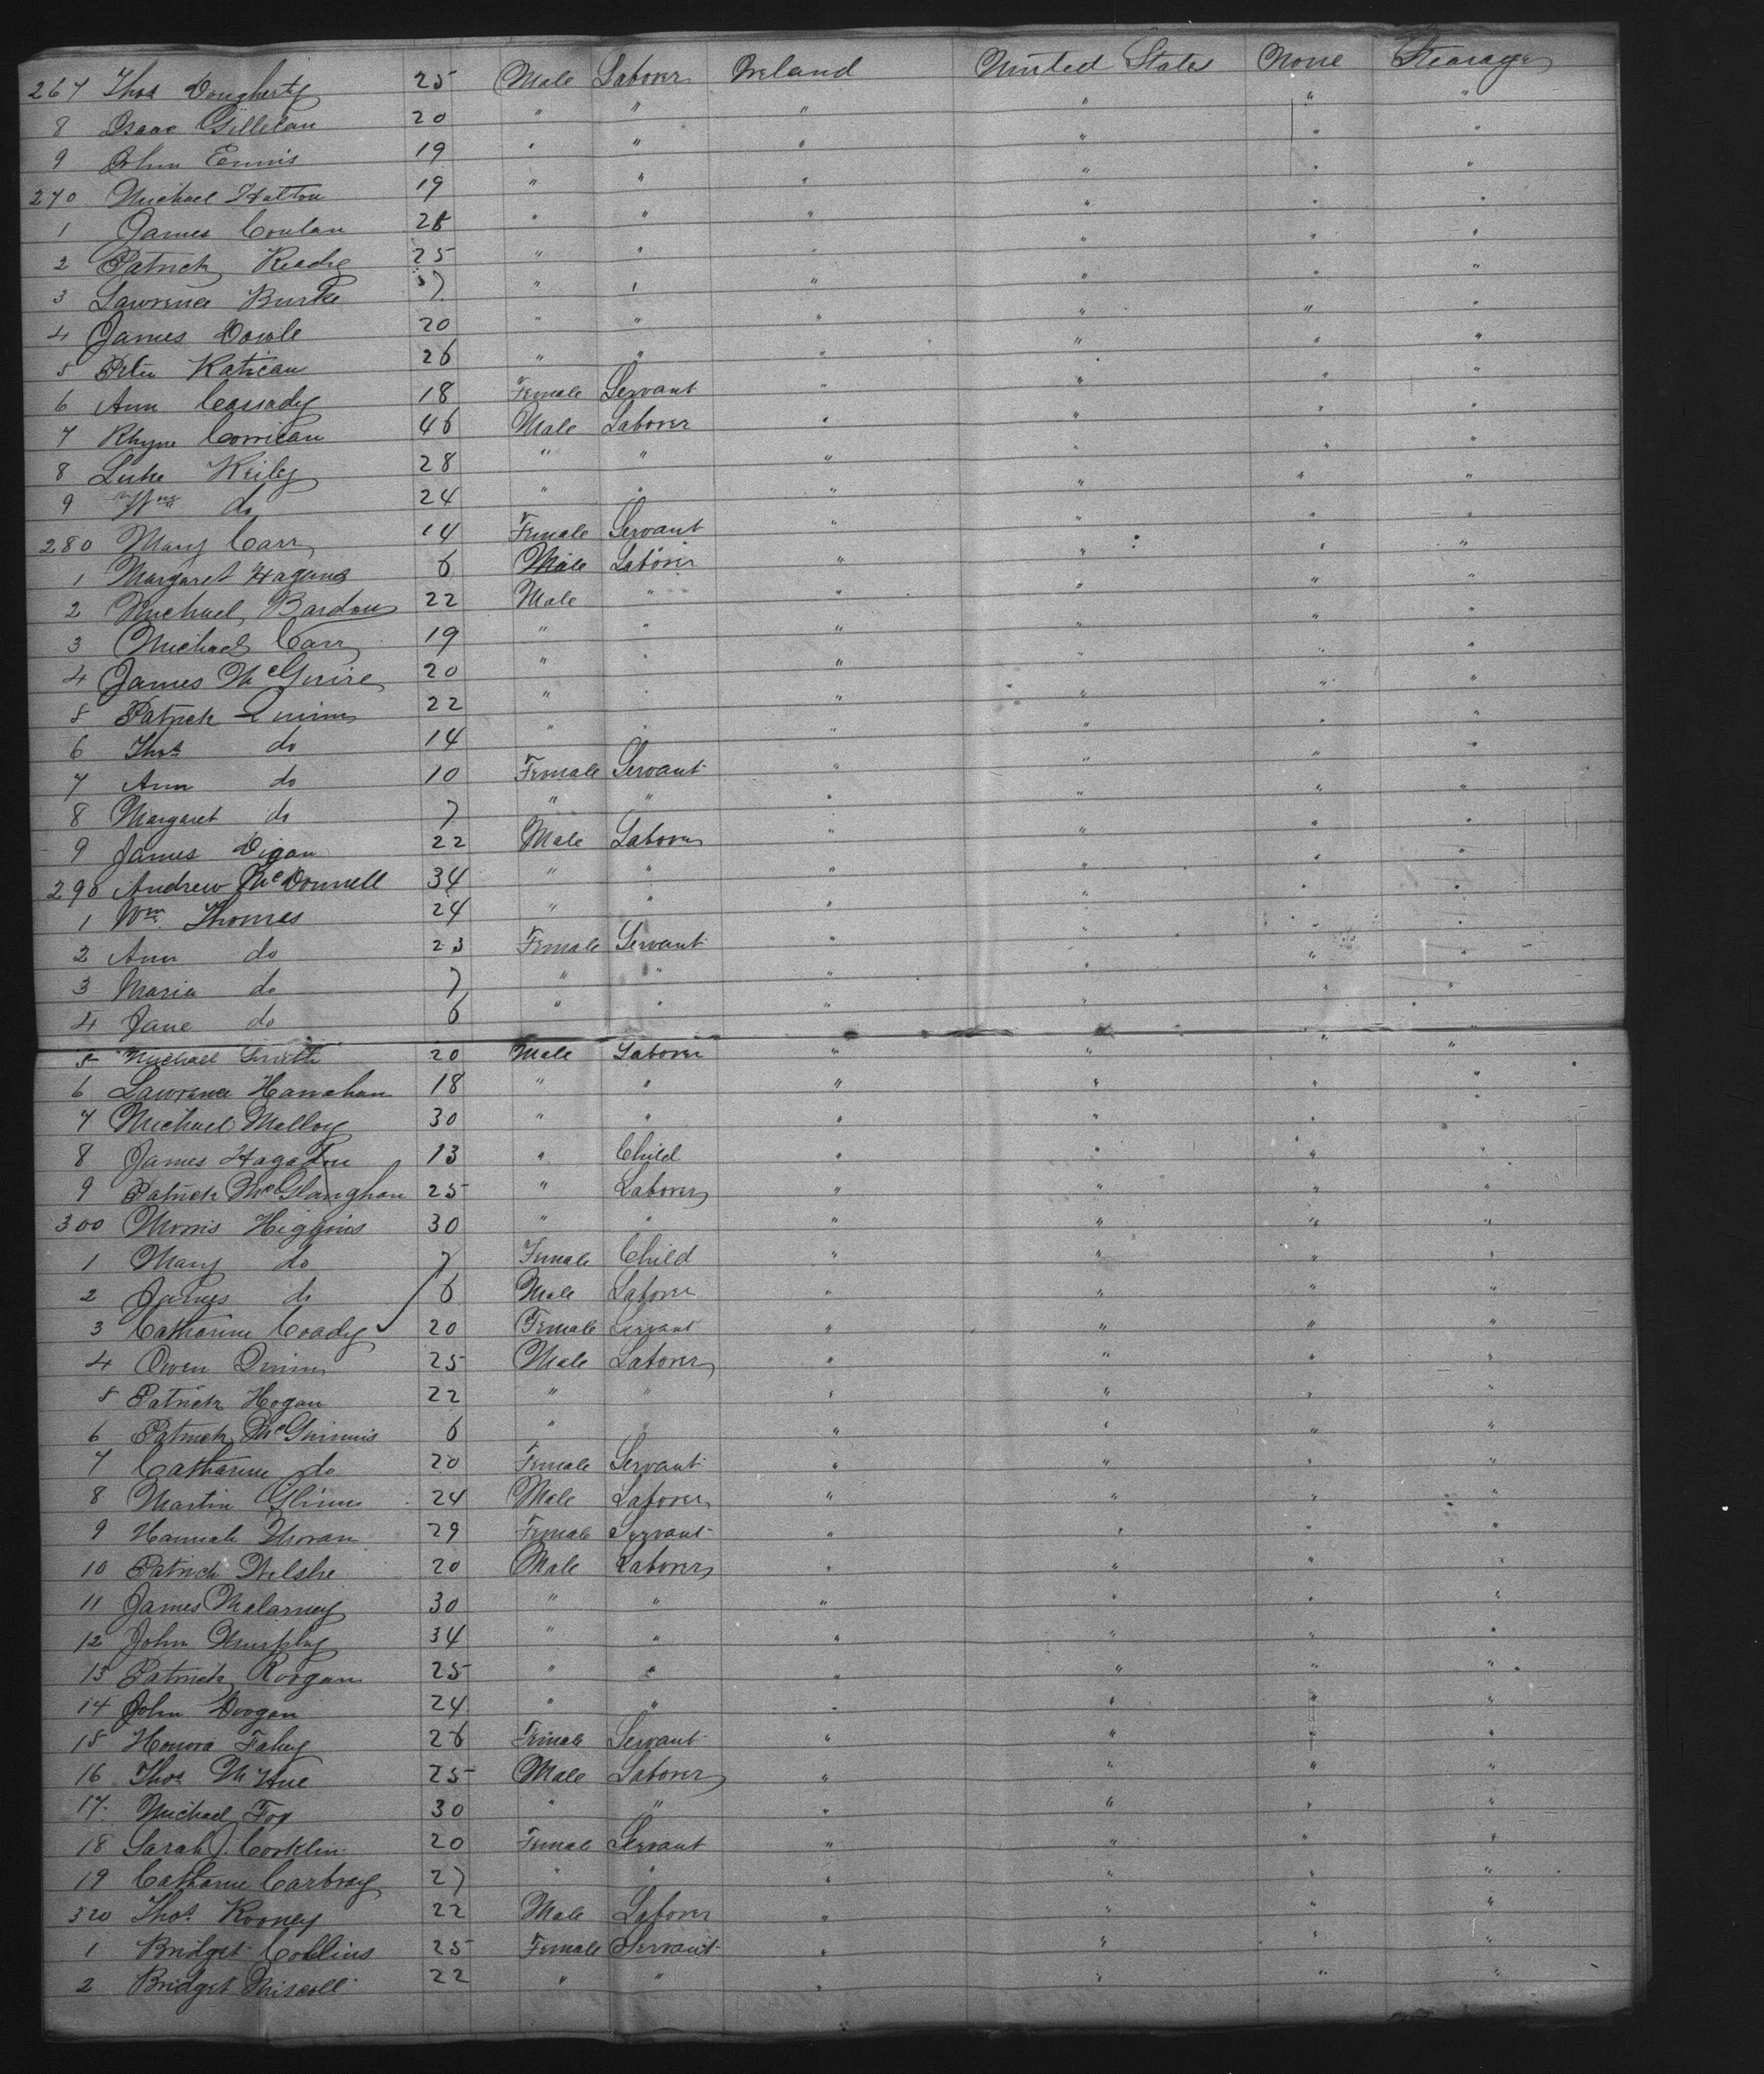 267 Thos Dougherty 25 Male Laborer Ireland United States None Steerage
8 Isaac Gillelan 20 " " " " " "
9 John Ennis 19 " " " " " "
270 Michael Halton 19 " " " " " "
1 James Conlan 28 " " " " " "
2 Patrick Keady 25 " " " " " "
3 Lawrence Burke 37 " " " " " "
4 James Dowle 20 " " " " " "
5 Peter Katican 26 " " " " " "
6 Ann Cassady 18 Female Servant " " " "
7 Rhyne Corrican 46 Male Laborer " " " "
8 Luke Keiley 28 " " " " " "
9 Wm do 24 " " " " " "
280 Mary Carr 14 Female Servant " " " "
1 Margaret Hagans 6 Male Laborer " " " "
2 Michael Bardon 22 Male " " " " "
3 Michael Carr 19 " " " " " "
4 James McGuire 20 " " " " " "
5 Patrick Quinn 22 " " " " " "
6 Thos do 14 " " " " " "
7 Ann do 10 Female Servant " " " "
8 Margaret do 7 " " " " " "
9 James Digan 22 Male Laborer " " " "
290 Andrew McDonnell 34 " " " " " "
1 Wm Thomas 24 " " " " " "
2 Ann do 23 Female Servant " " " "
3 Maria do 7 " " " " " "
4 Jane do 6 " " " " " "
5 Michael Smith 20 Male Laborer " " " "
6 Lawrence Hanrahan 18 " " " " " "
7 Michael Malloy 30 " " " " " "
8 James 13 " Child " " " "
9 Patrick McGlanghan 25 " Laborer " " " "
300 Morris Higgins 30 " " " " " "
1 Mary do 7 Female Child " " " "
2 James do 6 Male Laborer " " " "
3 Catharine Coady 20 Female Servant " " " "
4 Owen Quinn 25 Male Laborer " " " "
5 Patrick Hogan 22 " " " " " "
6 Patrick McGuinnis 6 " " " " " "
7 Catharine do 20 Female Servant " " " "
8 Martin Glinn 24 Male Laborer " " " "
9 Hannah Moran 29 Female Servant " " " "
10 Patrick Welshe 20 Male Laborer " " " "
11 James Malarney 30 " " " " " "
12 John Murphy 34 " " " " " "
13 Patrick Roogan 25 " " " " " "
14 John Doogan 24 " " " " " "
15 Honora Fahey 26 Female Servant " " " "
16 Thos McHue 25 Male Laborer " " " "
17 Michael Fox 30 " " " " " "
18 Sarah J. Conklin 20 Female Servant " " " "
19 Catharine Carbray 27 " " " " " "
320 Thos Rooney 22 Male Laborer " " " "
1 Bridget Collins 25 Female Servant " " " "
2 Bridget Driscoll 22 " " " " " "